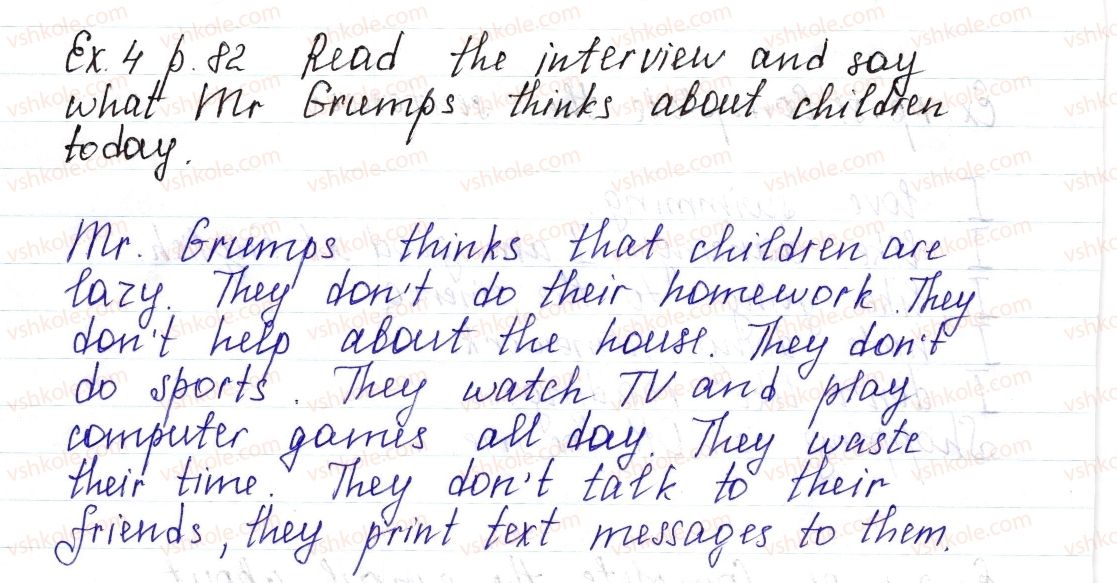 Ex. 4 p. 82 Read the interview and say
what Mr Grumps thinks about children
today.
Mr. Grumps thinks that children are
lazy. They don't do their homework. They
don't help about the house. They don't
do sports. They watch TV and play
computer games all day. They waste
their time. They don't talk to their
friends, they print text messages to them.